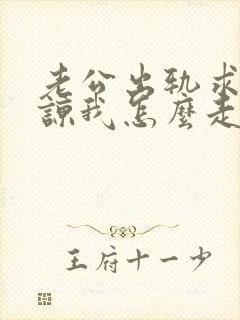 老公出轨求
谅我怎麼走
王府十一少